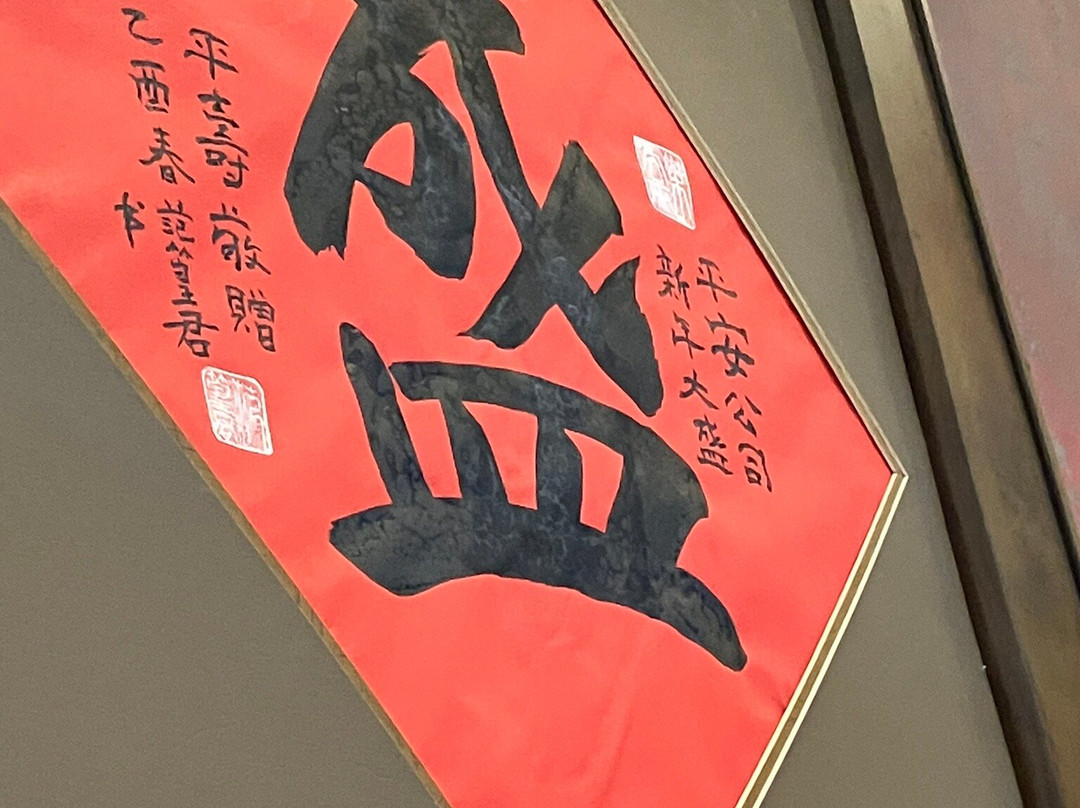 平安公司
新年大盛
盛
平壽敬贈
乙酉春范君
书